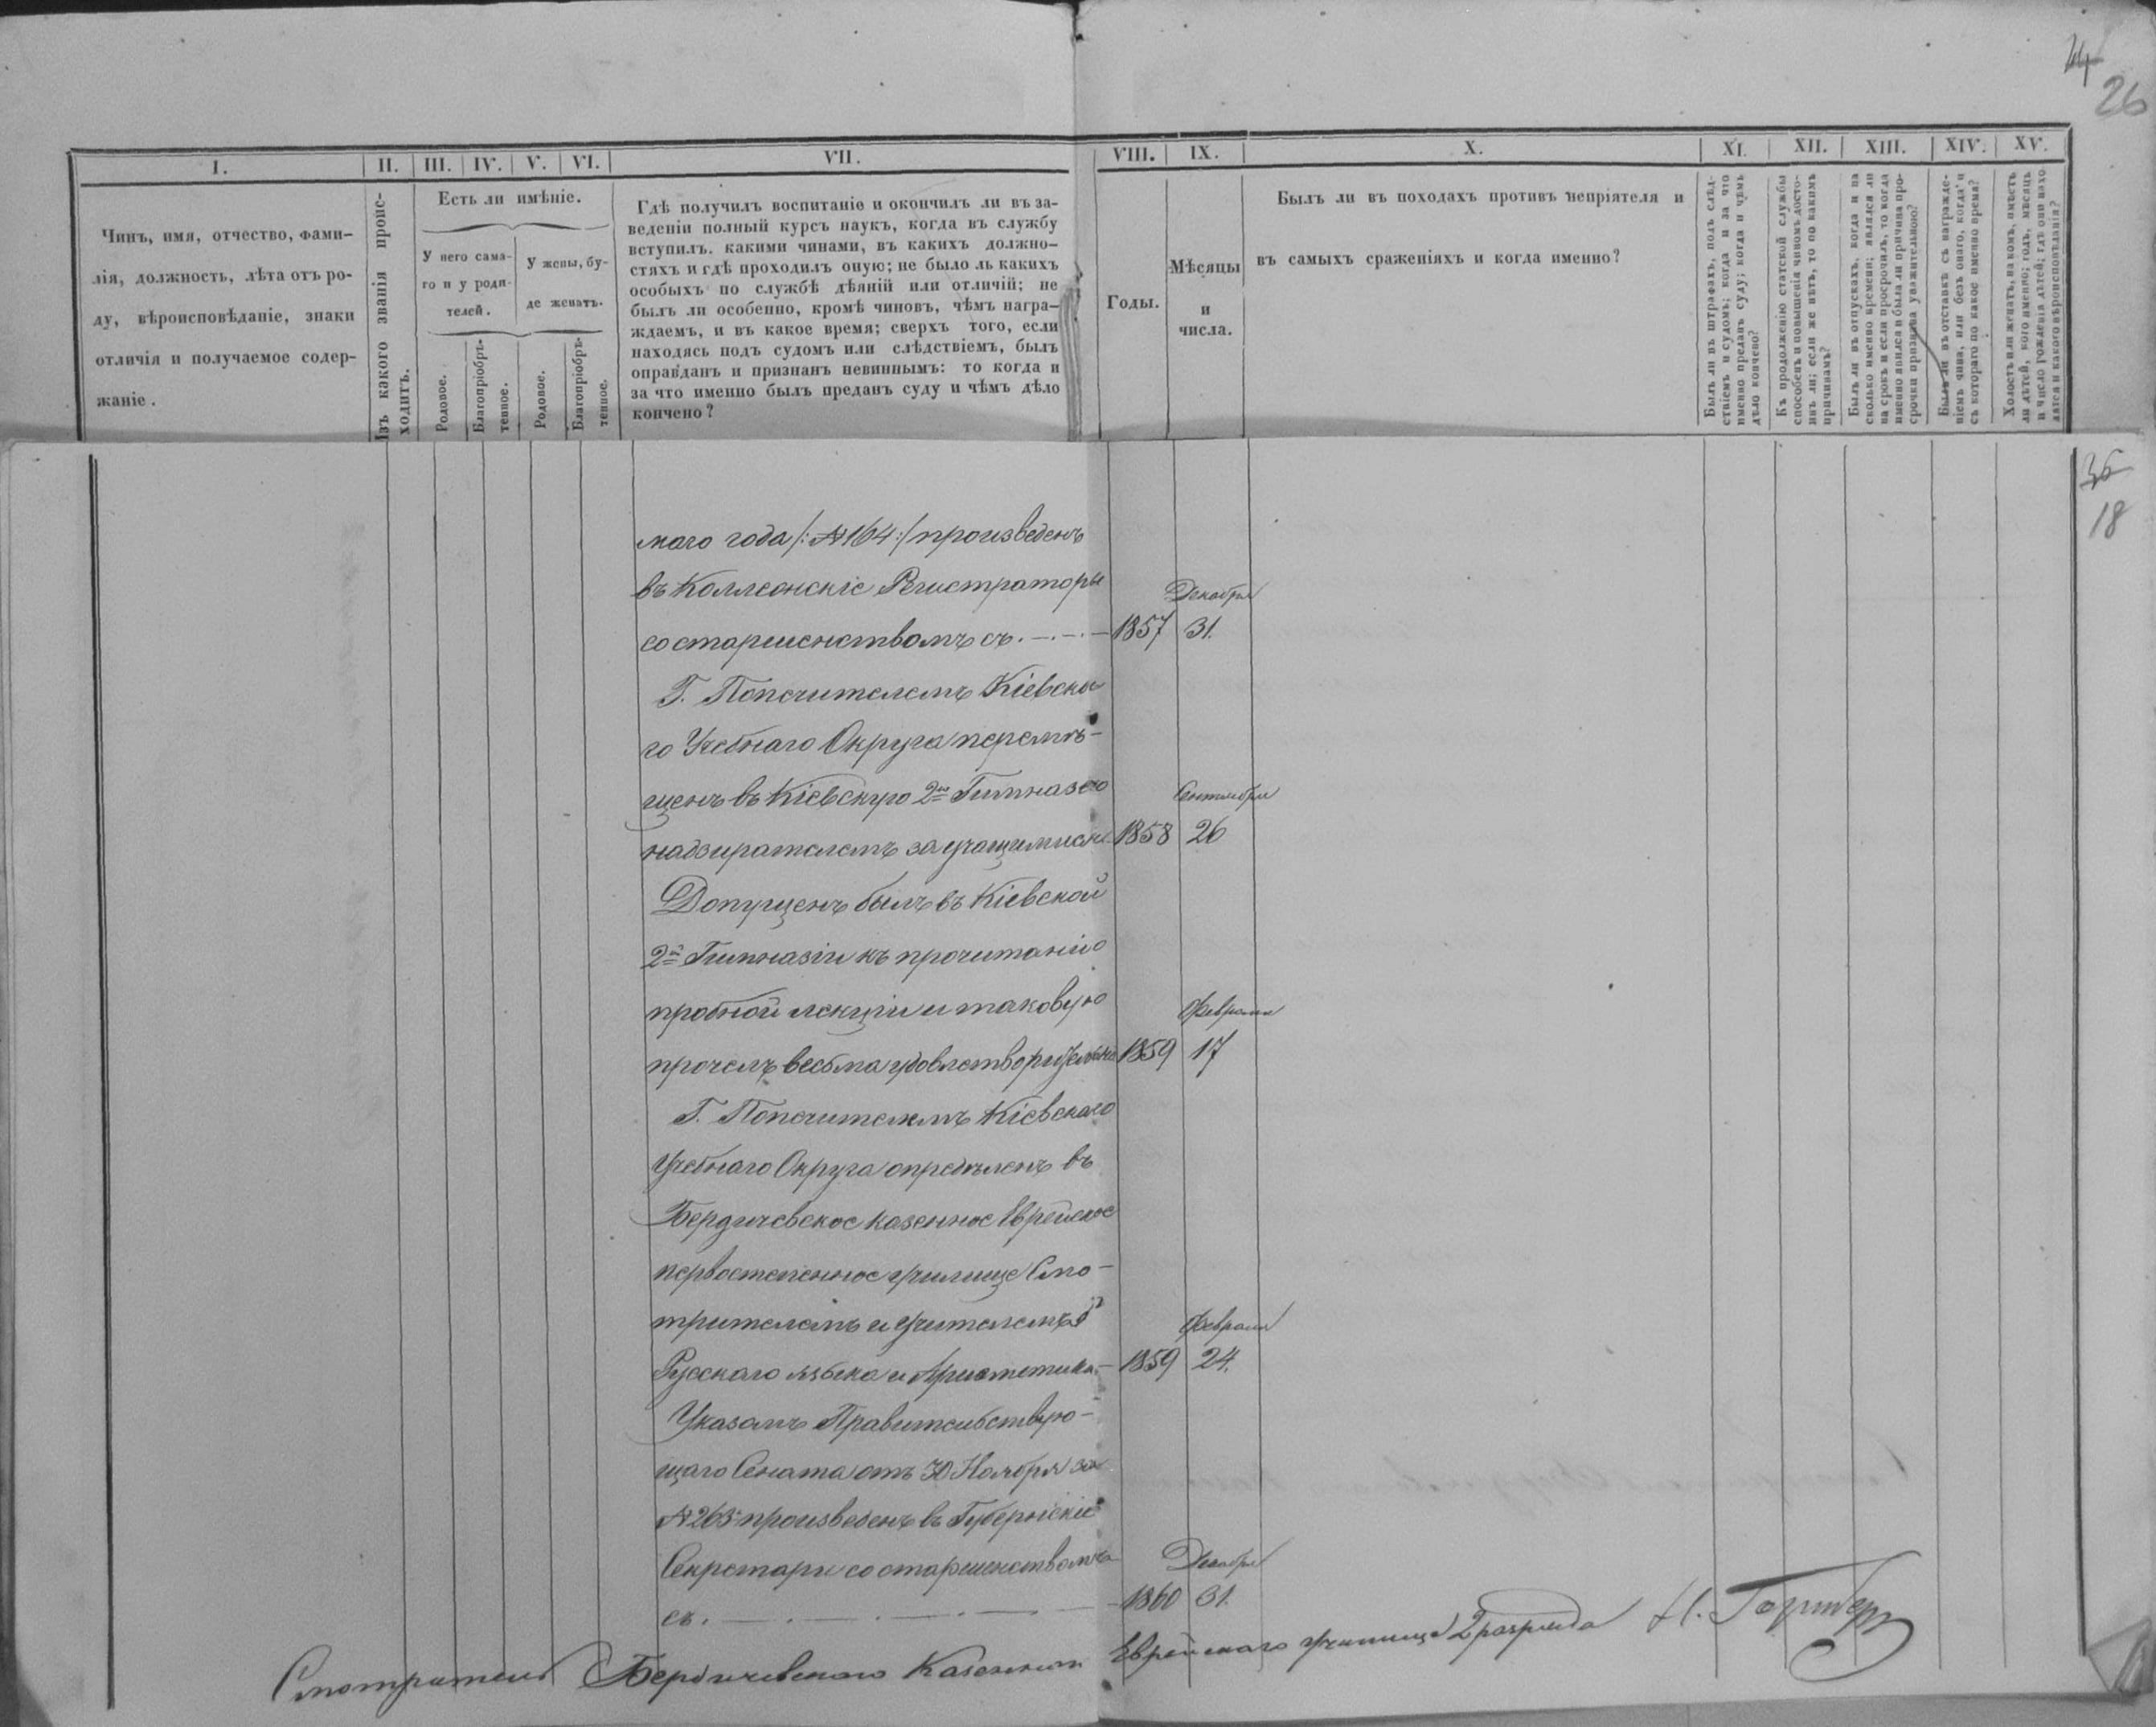 44
26
I.
II.
III.
IV.
V.
VI.
VII.
VIII.
IX.
X.
XI.
XII.
XIII.
XIV.
XV.
Чинъ, имя, отчество, фами-
лія, должность, лѣта отъ ро-
ду, вѣроисповѣданіе, знаки
отличія и получаемое содер-
жаніе.
Изъ какого званія проис-
ходитъ.
Есть ли имѣніе.
У него сама-
го и у роди-
телей.
У жены, бу-
де женатъ.
Родовое.
Благопріобрѣ-
тенное.
Родовое.
Благопріобрѣ-
тенное.
Гдѣ получилъ воспитаніе и окончилъ ли въ за-
веденіи полный курсъ наукъ, когда въ службу
вступилъ. какими чинами, въ какихъ должно-
стяхъ и гдѣ проходилъ оную; не было ль какихъ
особыхъ по службѣ дѣяній или отличій; не
былъ ли особенно, кромѣ чиновъ, чѣмъ награ-
ждаемъ, и въ какое время; сверхъ того, если
находясь подъ судомъ или слѣдствіемъ, былъ
оправданъ и признанъ невиннымъ: то когда и
за что именно былъ преданъ суду и чѣмъ дѣло
кончено?
Годы.
Мѣсяцы
и
числа.
Былъ ли въ походахъ противъ непріятеля и
въ самыхъ сраженіяхъ и когда именно?
Былъ ли въ штрафахъ, подъ слѣд-
ствіемъ и судомъ; когда и за что
именно преданъ суду; когда и чѣмъ
дѣло кончено?
Къ продолженію статской службы
способенъ и повышенія чиномъ досто-
инъ ли; если же нѣтъ, то по какимъ
причинамъ?
Былъ ли въ отпускахъ, когда и на
сколько именно времени; являлся ли
на срокъ и если просрочилъ, то когда
именно явился и была ли причина про-
срочки признана уважительною?
Былъ ли въ отставкѣ съ награжде-
ніемъ чина, или безъ онаго, когда и
съ котораго по какое именно время?
Холостъ или женатъ, на комъ, имѣетъ
ли дѣтей, кого именно; годъ, мѣсяцъ
и число рожденія дѣтей; гдѣ они нахо-
дятся и какого вѣроисповѣданія?
18
маго года /:№164:/ произведенъ
въ Коллежскіе Регистраторы
Декабря
со старшинствомъ съ. 1857 31.
Г. Попечителемъ Кіевска
го Учебнаго Округа перемѣ-
щенъ въ Кіевскую 2ю Гимназію
Сентября
надзирателемъ за учащимися. 1858 26
Допущенъ былъ въ Кіевской
2й Гимназіи къ прочитанію
пробной лекціи и таковую
Февраля
прочелъ весьма удовлетворительно 1859 17
Г. Попечителемъ Кіевскаго
Учебнаго Округа опредѣленъ въ
Бердичевское казенное Еврейское
первостепенное училище Смо-
трителемъ и учителемъ
Февраля
Русскаго языка и Ариѳметики 1859 24.
Указомъ Правительствую-
щаго Сената отъ 30 Ноября за
№263 произведенъ въ Губернскіе
Секретари со старшинствомъ
Декабря
съ. 1860 31.
Смотритель Бердичевскаго Казеннаго Еврейскаго училища 2 разряда